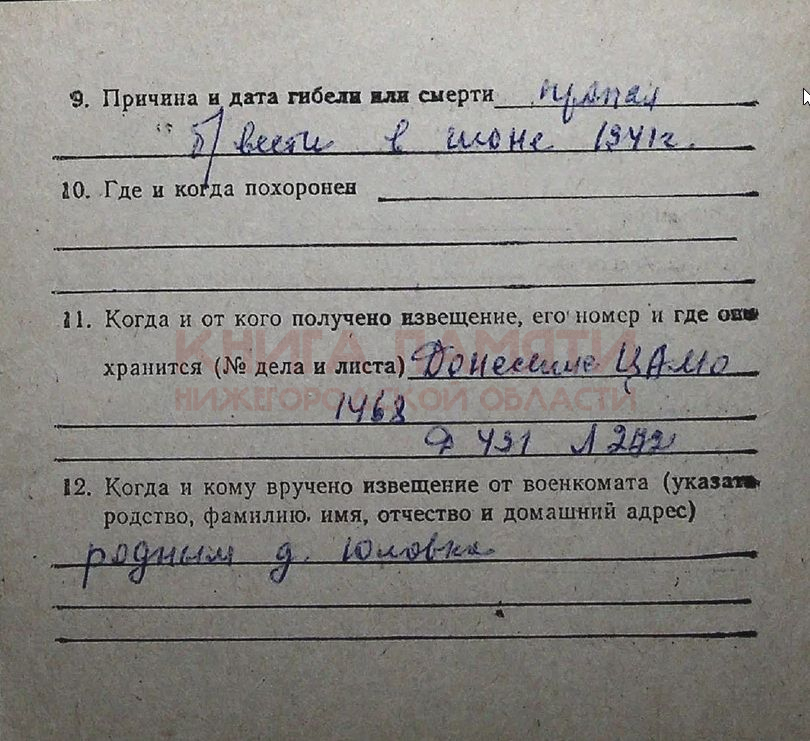 9. Причина и дата гибели или смерти пропал
б/вести в июне 1941г.
10. Где и когда похоронен
11. Когда и от кого получено извещение, его номер и где оно
КНИГА ПАМЯТИ
хранится (№ дела и листа) Донесение ЦАМО
НИЖЕГОРОДСКОЙ ОБЛАСТИ
1468
Д 431 Л 292
12. Когда и кому вручено извещение от военкомата (указать
родство, фамилию, имя, отчество и домашний адрес)
родным д. Юловка